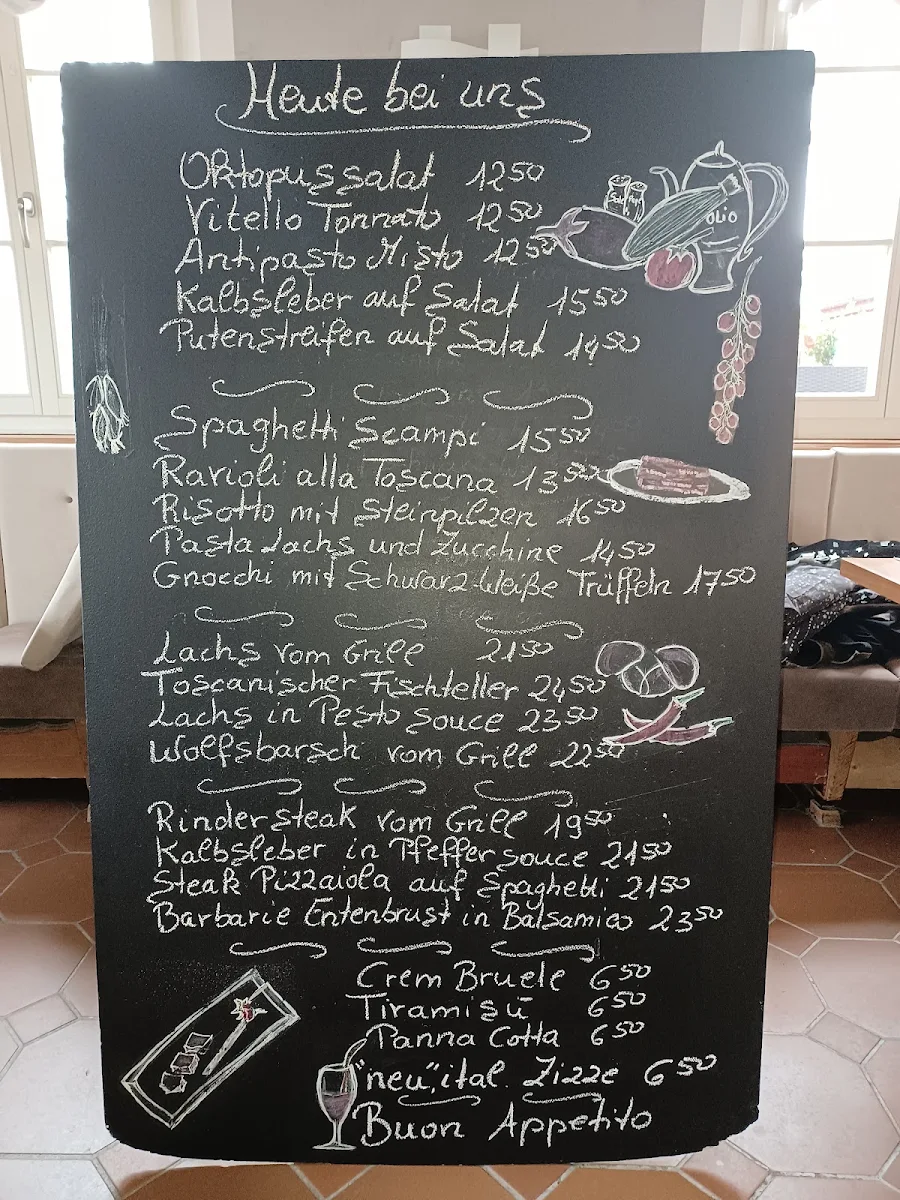 Heute bei uns
Oktopussalat 1250
Vitello Tonnato 1250
Antipasto Misto 1250
Kalbsleber auf Salat 1550
Putenstreifen auf Salat 1450
Salz
OLIO
Spaghetti Scampi 1550
Ravioli alla Toscana 1350
Risotto mit Steinpilzen 1650
Pasta Lachs und Zucchine 1450
Gnocchi mit Schwarz-Weiße Trüffeln 1750
Lachs vom Grill 2150
Toscanischer Fischteller 2450
Lachs in Pesto souce 2350
Wolfsbarsch vom Grill 2250
Rindersteak vom Grill 1950
Kalbsleber in Pfeffersouce 2150
Steak Pizzaiola auf Spaghetti 2150
Barbarie Entenbrust in Balsamico 2350
Crem Bruele 650
Tiramisu 650
Panna Cotta 650
"neu" ital. Zizze 650
Buon Appetito